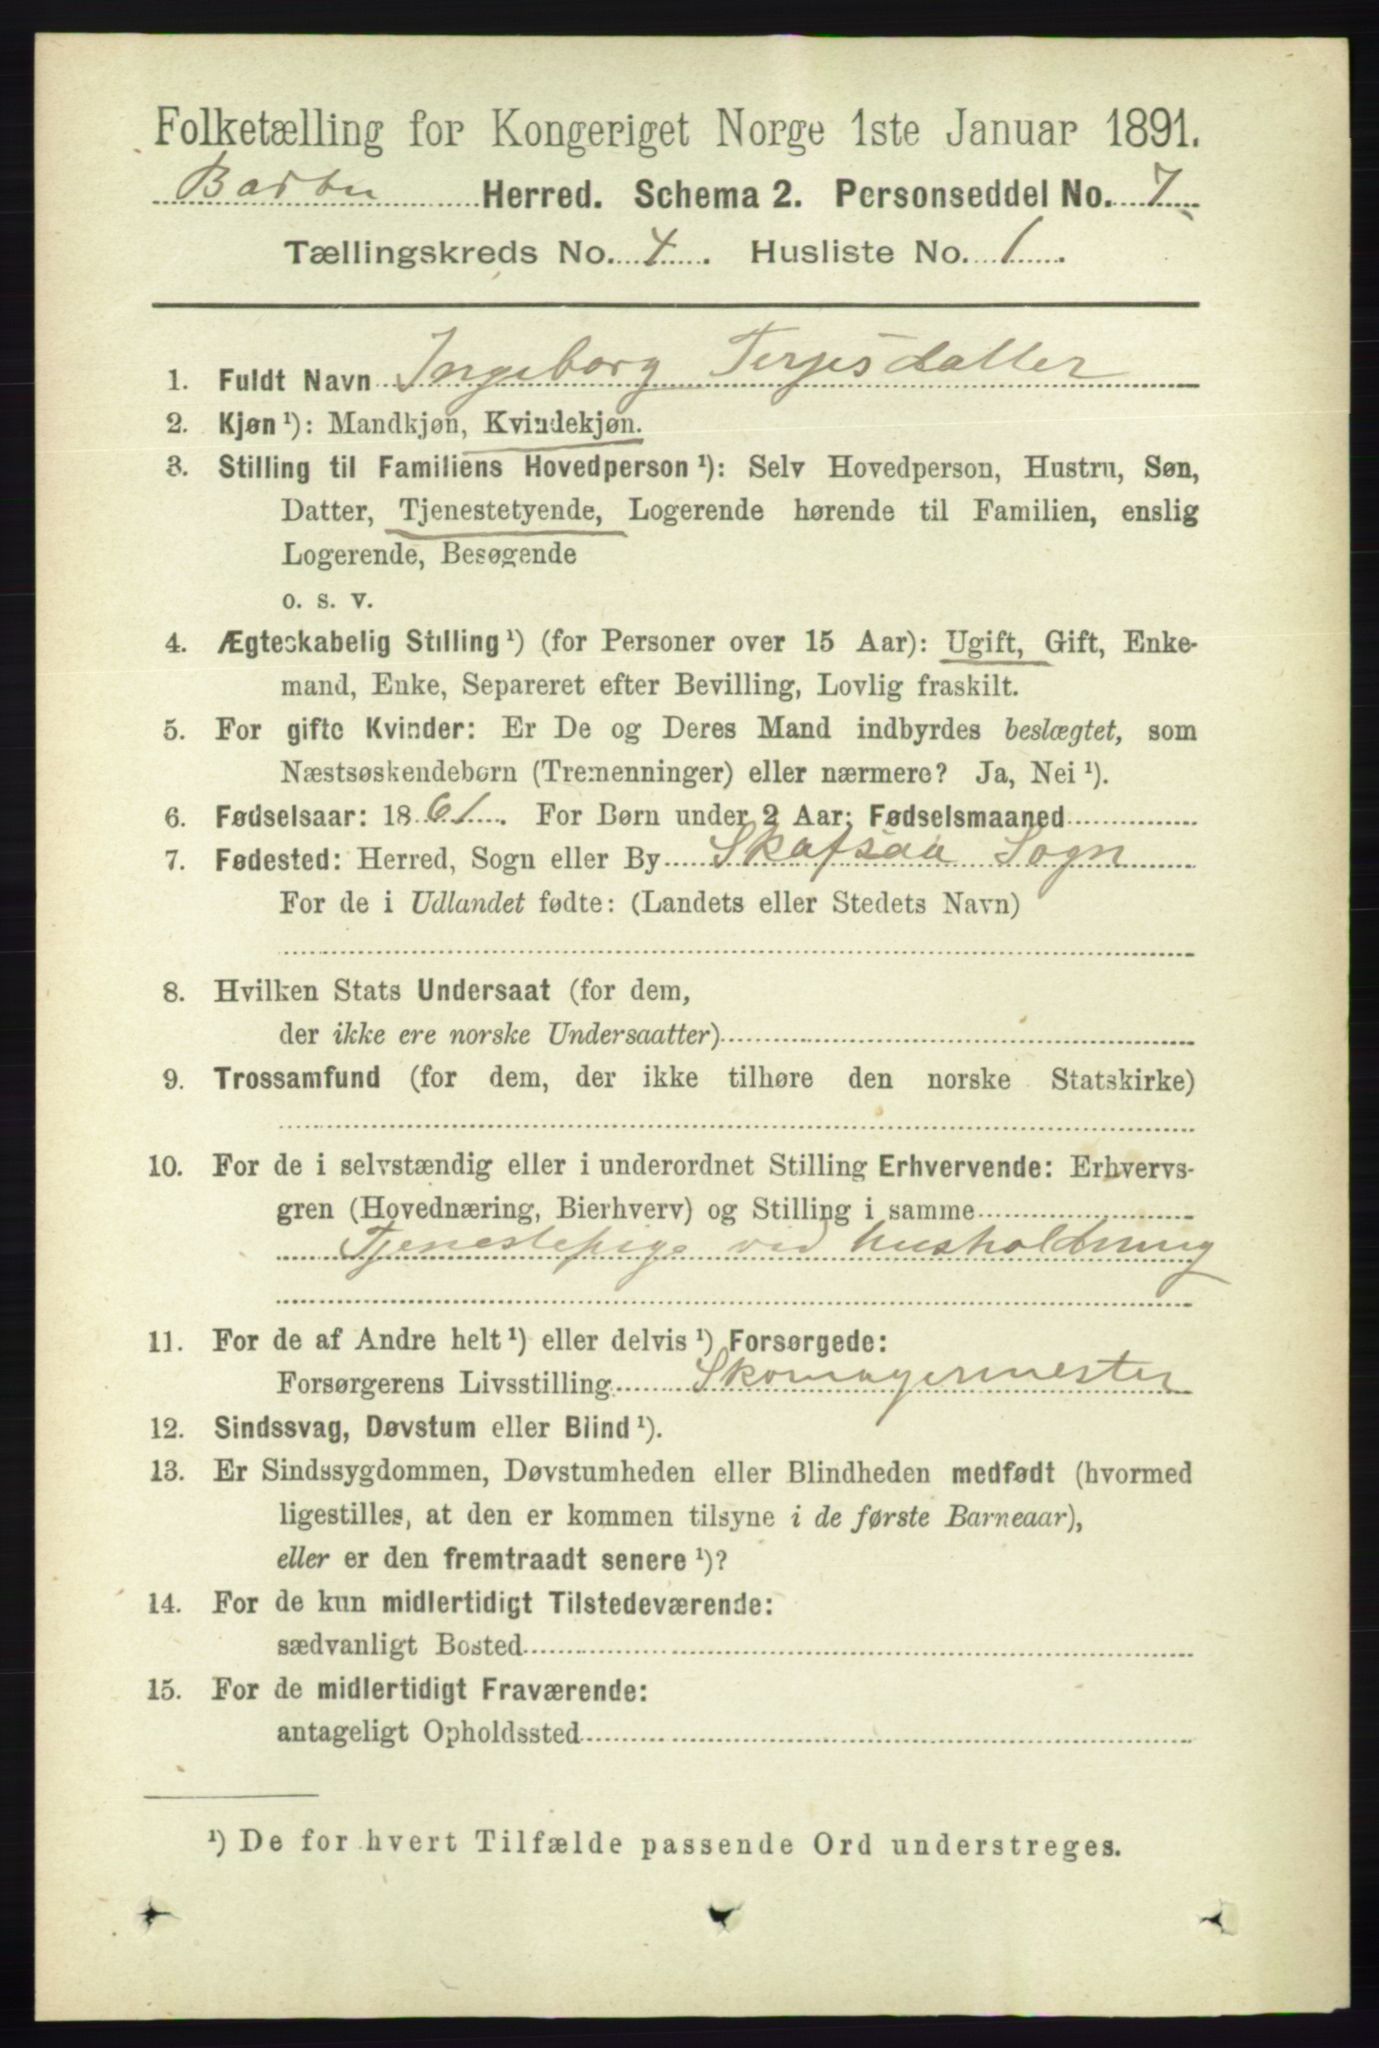 Folketælling for Kongeriget Norge 1ste Januar 1891.
Barbu Herred. Schema 2. Personseddel No. 7
Tællingskreds No. 4. Husliste No. 1.
1. Fuldt Navn Ingeborg Terjesdatter
2. Kjøn¹): Mandkjøn, Kvindekjøn.
3. Stilling til Familiens Hovedperson¹): Selv Hovedperson, Hustru, Søn,
Datter, Tjenestetyende, Logerende hørende til Familien, enslig
Logerende, Besøgende
o. s. v.
4. Ægteskabelig Stilling¹) (for Personer over 15 Aar): Ugift, Gift, Enke-
mand, Enke, Separeret efter Bevilling, Lovlig fraskilt.
5. For gifte Kvinder: Er De og Deres Mand indbyrdes beslægtet, som
Næstsøskendebørn (Tremenninger) eller nærmere? Ja, Nei¹).
6. Fødselsaar: 1861. For Børn under 2 Aar: Fødselsmaaned
7. Fødested: Herred, Sogn eller By Skafsaa Sogn
For de i Udlandet fødte: (Landets eller Stedets Navn)
8. Hvilken Stats Undersaat (for dem,
der ikke ere norske Undersaatter)
9. Trossamfund (for dem, der ikke tilhøre den norske Statskirke)
10. For de i selvstændig eller i underordnet Stilling Erhvervende: Erhvervs-
gren (Hovednæring, Bierhverv) og Stilling i samme
Tjenestepige ved husholdning
11. For de af Andre helt¹) eller delvis¹) Forsørgede:
Forsørgerens Livsstilling Skomagermester
12. Sindssvag, Døvstum eller Blind¹).
13. Er Sindssygdommen, Døvstumheden eller Blindheden medfødt (hvormed
ligestilles, at den er kommen tilsyne i de første Barneaar),
eller er den fremtraadt senere¹)?
14. For de kun midlertidigt Tilstedeværende:
sædvanligt Bosted
15. For de midlertidigt Fraværende:
antageligt Opholdssted
¹) De for hvert Tilfælde passende Ord understreges.